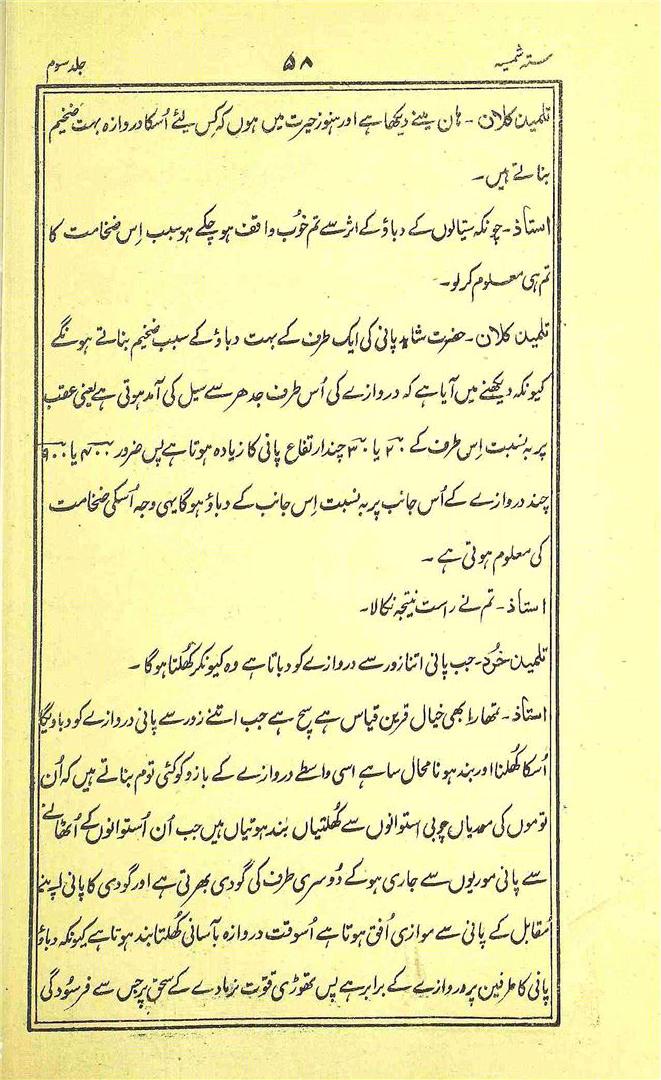 ستہ شمسیہ ۵۸ جلد سوم
تلمیذ کلان ۔ ہان مینے دیکھا ہے اور ہنوز حیرت میں ہوں کہ کِس لیٔے اُسکا دروازہ بہت ضخیم
بناتے ہیں۔
استاذ ۔ چونکہ سیّالوں کے دباؤ کے اثر سے تم خُوب واقف ہو چکے ہو سبب اِس ضخامت کا
تم ہی معلوم کر لو۔
تلمیذ کلان ۔ حضرت شاید پانی کی ایک طرف کے بہت دباؤ کے سبب ضخیم بناتے ہونگے
کیونکہ دیکھنے میں آیا ہے کہ دروازے کی اُس طرف جدھر سے سیل کی آمد ہوتی ہے یعنی عقب
پر بہ نسبت اِس طرف کے ۲ یا ۳ چند ارتفاع پانی کا زیادہ ہوتا ہے پس ضرور ۴ یا ۹
چند دروازے کے اُس جانب پر بہ نسبت اِس جانب کے دباؤ ہوگا یہی وجہ اُسکی ضخامت
کی معلوم ہوتی ہے ۔
استاذ ۔ تم نے راست نتیجہ نکالا۔
تلمیذ خُرد ۔ جب پانی اتنا زور سے دروازے کو دباتا ہے وہ کیونکر کُھلتا ہوگا ۔
استاذ ۔ تمھارا بھی خیال قرین قیاس ہے سچ ہے جب اتنے زور سے پانی دروازے کو دباویگا
اُسکا کُھلنا اور بند ہونا محال سا ہے اسی واسطے دروازے کے بازو کو کئی توم بناتے ہیں کہ اُن
توموں کی موریاں چوبی استوانوں سے کُھلتیاں بند ہوتیاں ہیں جب اُن اُستوانوں کے اُٹھانے
سے پانی موریوں سے جاری ہو کے دُوسری طرف کی گودی بھرتی ہے اور گودی کا پانی اپنے
مُقابل کے پانی سے موازی اُفق ہوتا ہے اُسوقت دروازہ بآسانی کُھلتا بند ہوتا ہے کیونکہ دباؤ
پانی کا طرفین پر دروازے کے برابر ہے پس تھوڑی قوّت نر مادے کے سحق پر جس سے فرسُودگی